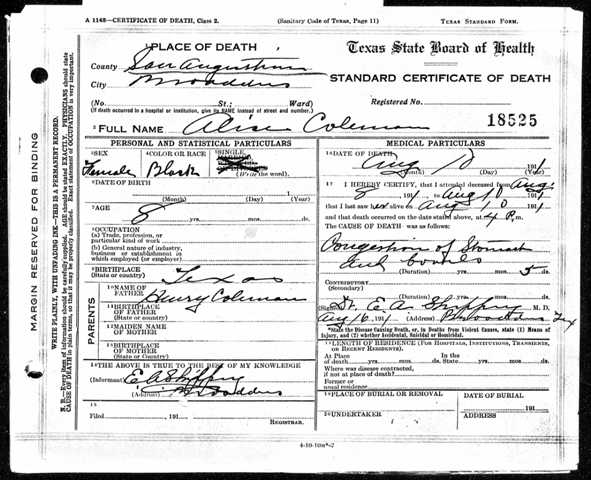 A 1148—CERTIFICATE OF DEATH, Class 2. (Sanitary Code of Texas, Page 11) TEXAS STANDARD FORM.
PLACE OF DEATH
County San Augustine
City Broaddus
Texas State Board of Health
STANDARD CERTIFICATE OF DEATH
(No. St.; Ward)
(If death occurred in a hospital or institution, give its NAME instead of street and number.)
Registered No.
18525
FULL NAME Alise Coleman
PERSONAL AND STATISTICAL PARTICULARS
SEX Female
COLOR OR RACE Black
SINGLE,
(Write the word).
DATE OF BIRTH
(Month) (Day) (Year)
AGE 8 yrs. mos. ds.
OCCUPATION
(a) Trade, profession, or
particular kind of work
(b) General nature of industry,
business or establishment in
which employed (or employer)
BIRTHPLACE
(State or country) Texas
PARENTS
NAME OF
FATHER Henry Coleman
BIRTHPLACE
OF FATHER
(State or country)
MAIDEN NAME
OF MOTHER
BIRTHPLACE
OF MOTHER
(State or Country)
THE ABOVE IS TRUE TO THE BEST OF MY KNOWLEDGE
(Informant)
(Address) Broaddus
Filed 191
REGISTRAR.
MEDICAL PARTICULARS
DATE OF DEATH
Aug 10 1911
(Month) (Day) (Year)
I HEREBY CERTIFY, that I attended deceased from Aug
8 1911 to Aug 10 1911
that I last saw alive on Aug 10 1911
and that death occurred on the date stated above, at 4 P.m.
The CAUSE OF DEATH was as follows:
Congestion of Stomach
and bowels
(Duration) yrs. mos. 5 ds.
CONTRIBUTORY
(Secondary)
(Duration) yrs. mos. ds.
Dr. E A M. D.
Aug 16 1911 (Address) Tex
*State the Disease Causing Death, or, in Deaths from Violent Causes, state (1) Means of
Injury, and (2) whether Accidental, Suicidal or Homicidal.
LENGTH OF RESIDENCE (For Hospitals, Institutions, Transients,
or Recent Residents).
At Place In the
of death yrs. mos. ds. State yrs. mos. ds.
Where was disease contracted,
if not at place of death?
Former or
usual residence
PLACE OF BURIAL OR REMOVAL
DATE OF BURIAL
191
UNDERTAKER
ADDRESS
MARGIN RESERVED FOR BINDING
WRITE PLAINLY, WITH UNFADING INK—THIS IS A PERMANENT RECORD.
N. B.—Every item of information should be carefully supplied. AGE should be stated EXACTLY. PHYSICIANS should state
CAUSE OF DEATH in plain terms, so that it may be properly classified. Exact statement of OCCUPATION is very important.